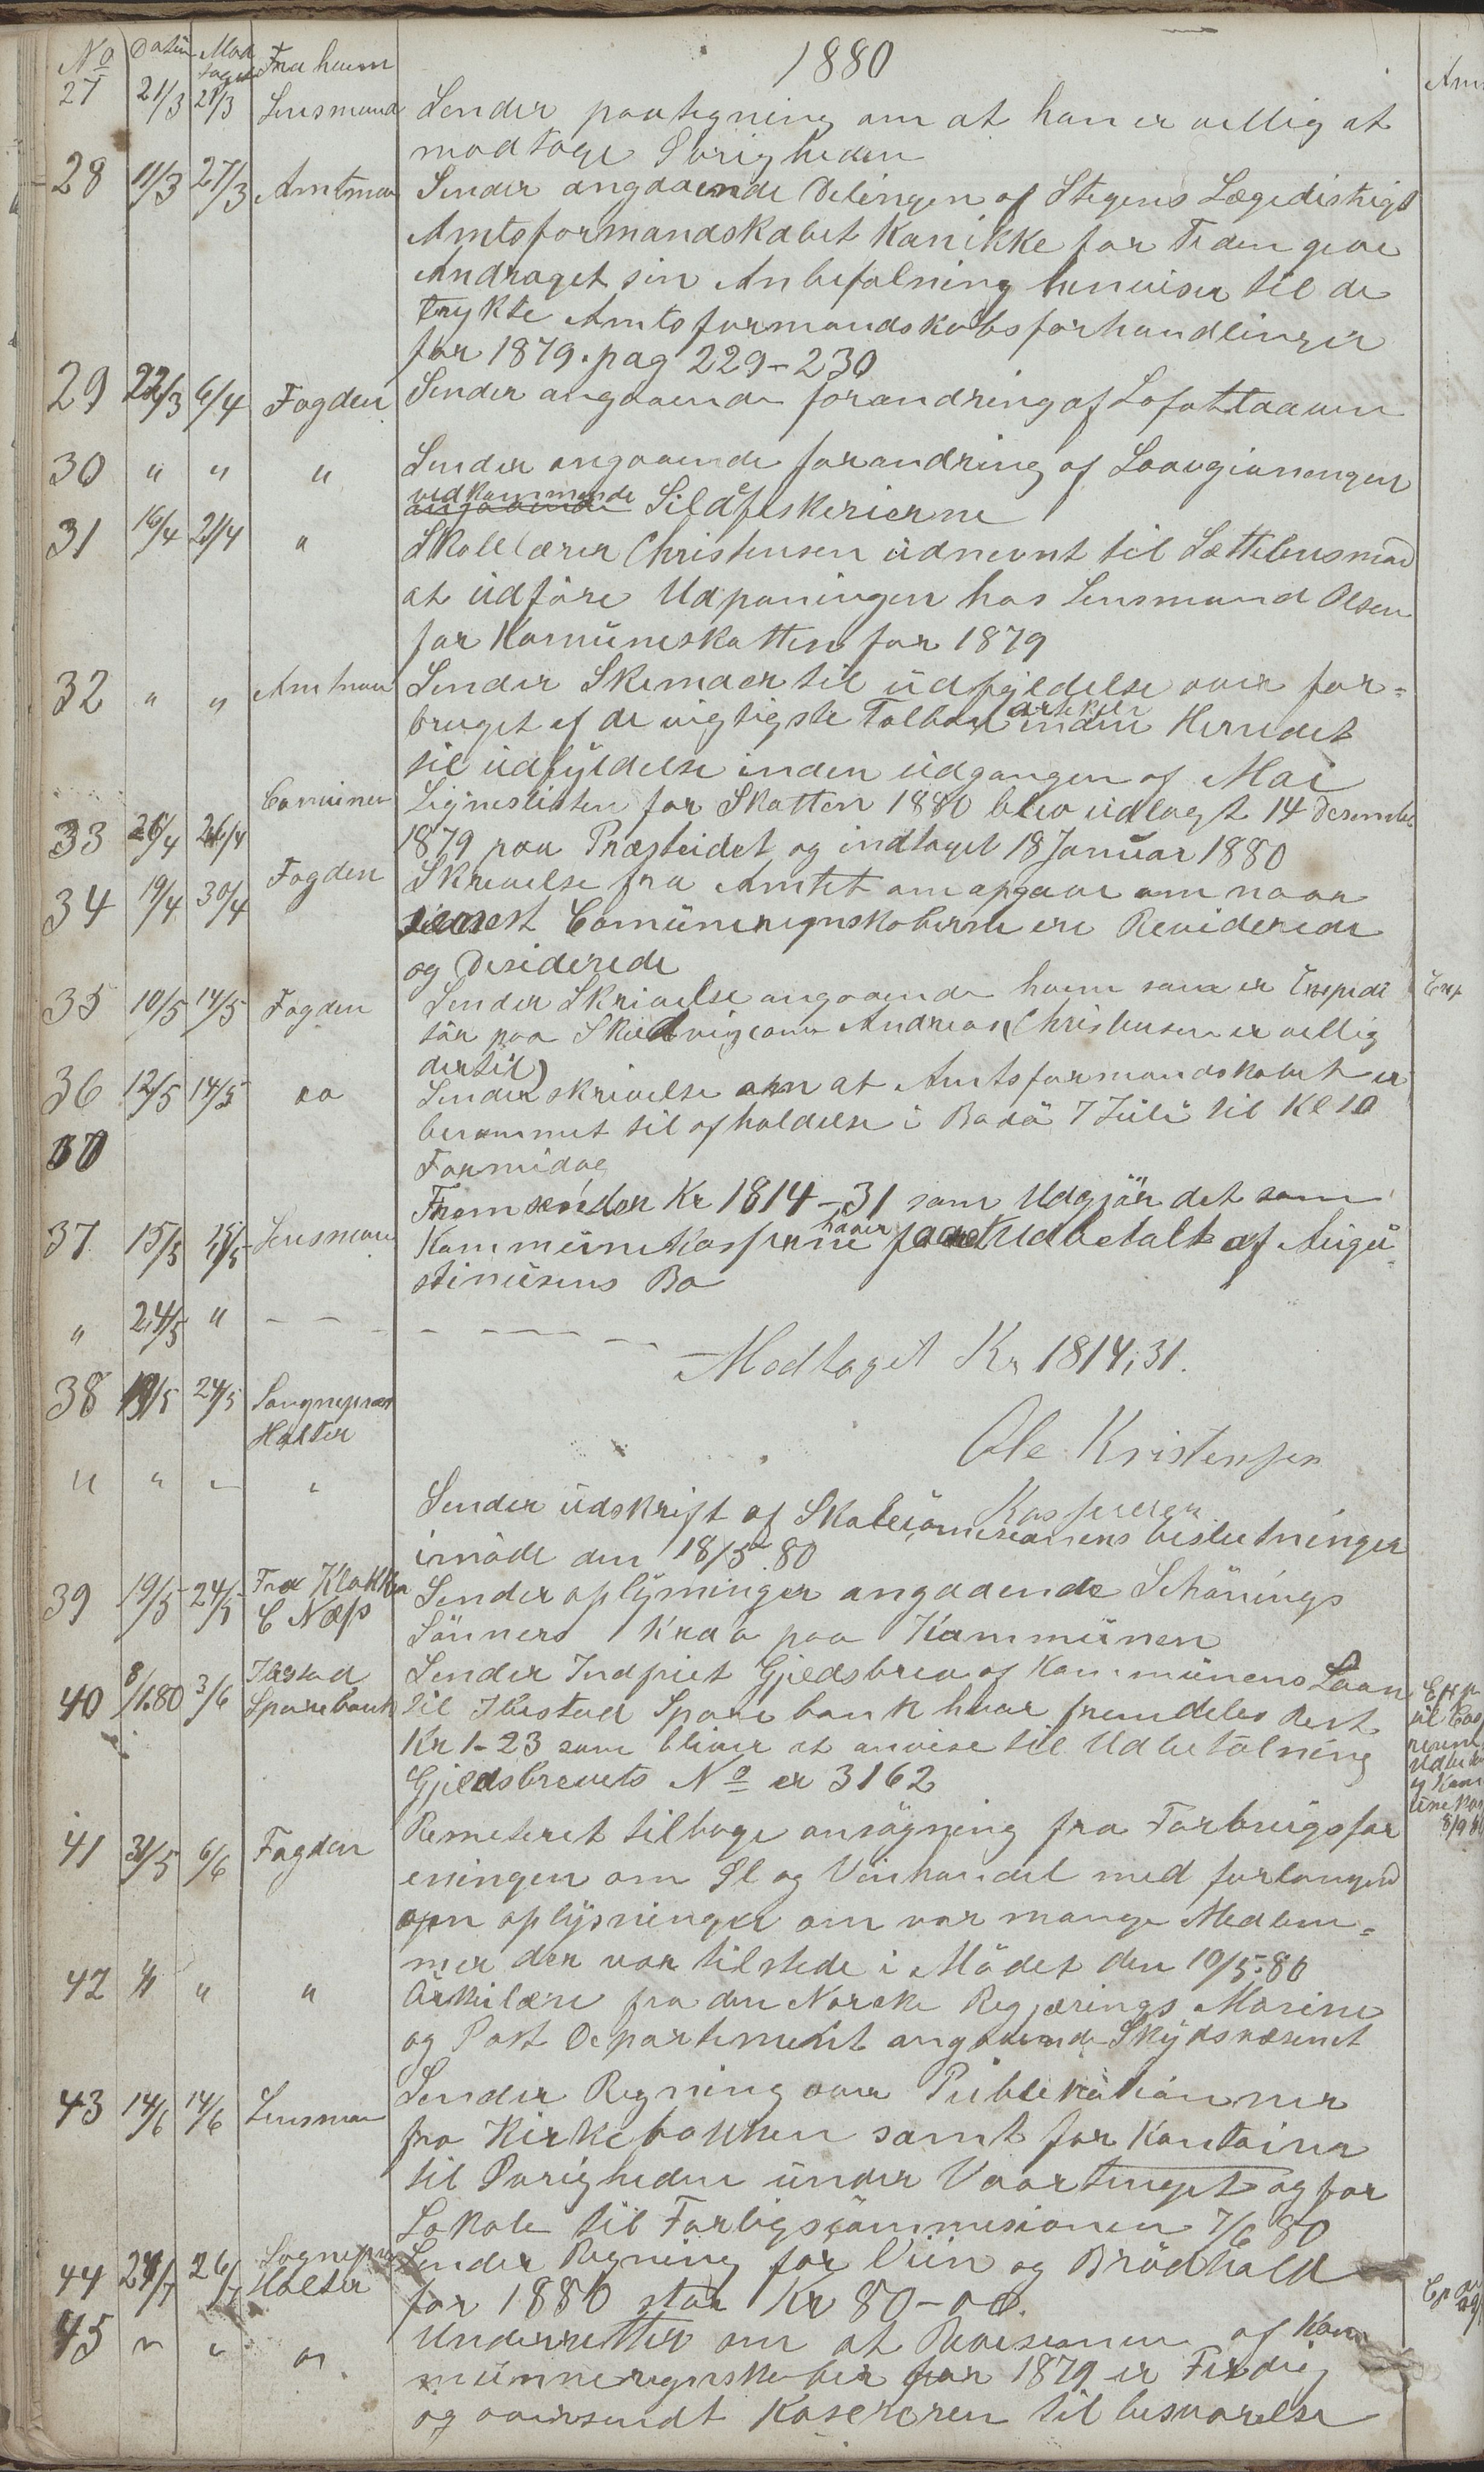 No Datum Mod taget Fra hvem 1880
27 21/3 21/3 Lensmand Sender paategning om at han er villig at
modtage Övrigheden
28 11/3 27/3 Amtman Sender angaaende Delingen af Stegens Lægedistrigt
Amtsformandskabet kan ikke for Tiden give
Andraget sin Anbefalning henviser til de
trykte Amtsformandskabsforhandlinger
for 1879. pag 229-230
29 22/3 6/4 Fogden Sender angaaende forandring af Lofottloven
30 " " " Sender angaaende forandring af Laavgivningen
vedkommende Sildefiskerierne
31 16/4 21/4 " Skolelærer Christensen udnevnt til Sættelensmand
at udföre Udpaningen hos Lensmand Olsen
for Komuneskatten for 1879
32 " " Amtman Sender Skemaer til udfyldelse over for=
bruget af de vigtigste Toldbar artikler inden Herredet
til udfyldelse inden udgangen af Mai
33 26/4 26/4 Comunen Ligneslisten for Skatten 1880 blev udlagt 14 Desember
1879 paa Præsteidet og indtaget 18 Januar 1880
34 19/4 30/4 Fogden Skrivelse fra Amtet om opgave om naar
senest Comuneregnskaberne ere Reviderede
og Desiderede
35 10/5 14/5 Fogden Sender Skrivelse angaaende hvem som er Exspedi Exp
tör paa Skudvig (om Andreas Christensen er villig
dertil)
36 12/5 14/5 do Sender skrivelse om at Amtsformandskabet er
berammet til afholdelse i Bodö 7 Juli til Kl 10
Formidag
37 15/5 15/5 Lensman Fremsender Kr 1814-31 som Udgjör det som
Kommunekasserne haver faaet Udbetalt af Augu=
stinusens Bo
" 24/5 " - - - - - -
Modtaget Kr 1814,31.
38 19/5 24/5 Sougnepræst
Halter
Ole Kristensen
Kasserer
" " " " Sender udskrift af Skolecömisionens beslutninger
imöde den 18/5 80
39 19/5 24/5 Fra Klokker
C Næss
Sender oplysninger angaaende Schönings
Sönners Krav paa Kommunen
40 8/1.80 3/6 Ibestad
Sparebank
Sender Indfriet Gjeldsbrev af Kommunens Laan
til Ibestad Sparebank hvor fremdeles Rest
Kr 1-23 som bliver at anvise til Udbetalning
Gjeldsbrevets No er 3162
41 31/5 6/6 Fogden Remeteret tilbage ansögning fra Forbrugsfor
eningen om Öl og Vinhandel med forlangend
om oplysninger om vor mange Medlem=
mer der var tilstede i Mödet den 10/5.80
42 " " " Cirkulære fra den Norske Regjærings Marine
og Post Departement angaaende Skydsvæsenet
43 14/6 14/6 Lensman Sender Regning over Publikationer
fra Kirkebakken samt for Kontoirer
til Övrigheden under Vaartinget og for
Lokale til Forligscommisionen 7/6 80
44 24/7 26/7 Sognepr
Halter
Sender Regning for Viin og Brödhold
for 1880 stor Kr 80-00.
45 " " " Underretter om at Revisionen af Kom
munneregnskaber for 1879 er Ferdig
og oversendt Kasereren til besvarelse